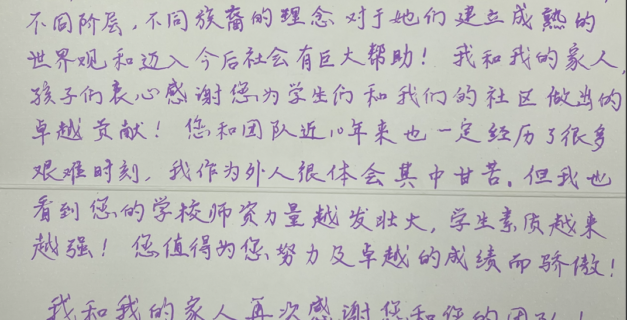 不同阶层，不同族裔的理念对于她们建立成熟的
世界观和迈入今后社会有巨大帮助！我和我的家人，
孩子们衷心感谢您为学生们和我们的社区做出的
卓越贡献！您和团队近10年来也一定经历了很多
艰难时刻，我作为外人很体会其中甘苦。但我也
看到您的学校师资力量越发壮大，学生素质越来
越强！您值得为您努力及卓越的成绩而骄傲！
我和我的家人再次感谢您和您的团队！